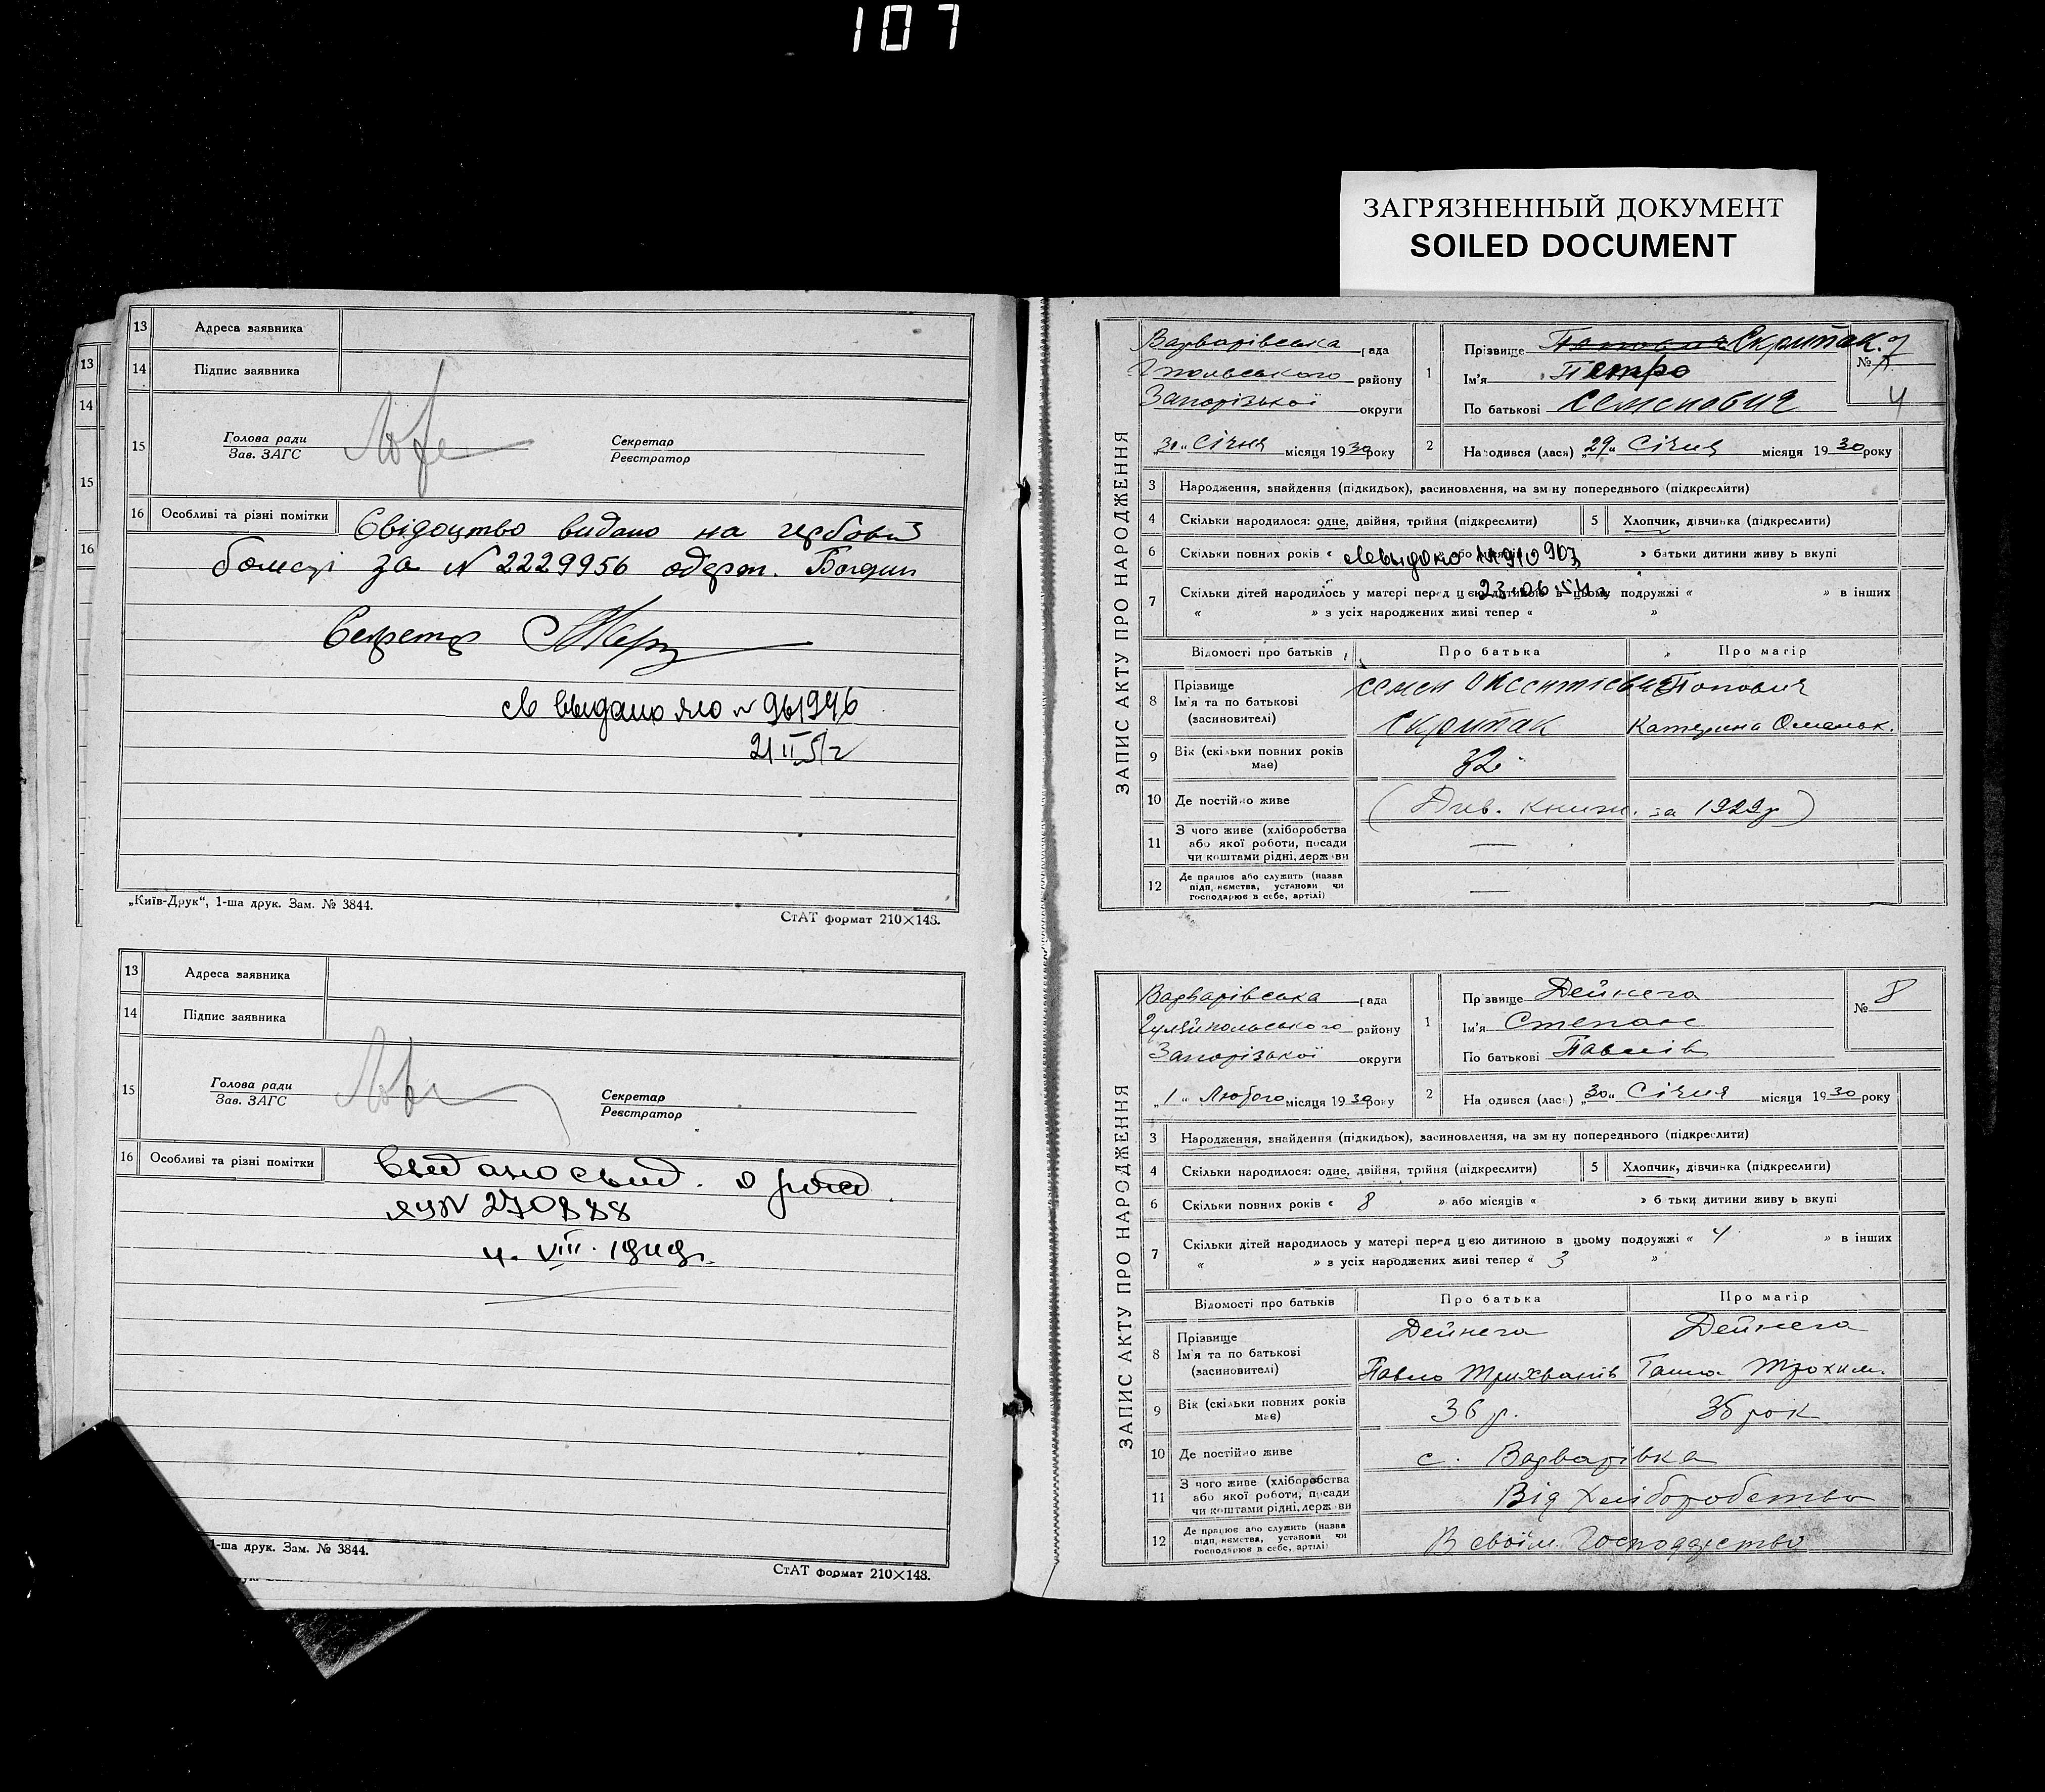 107
ЗАГРЯЗНЕННЫЙ ДОКУМЕНТ
SOILED DOCUMENT
13 Адреса заявника
14 Підпис заявника
15 Голова ради
Зав. ЗАГС
Секретар
Реєстратор
16 Особливі та різні помітки Свідоцтво видано на гербовій
за № 2229956 одерж.
Секретар
выдано яло № 961946
21 II 51 г
„Київ-Друк“, 1-ша друк. Зам. № 3844.
СтАТ формат 210×148.
13 Адреса заявника
14 Підпис заявника
15 Голова ради
Зав. ЗАГС
Секретар
Реєстратор
16 Особливі та різні помітки Выдано свид. о рожд.
270888
4. VIII. 1949г.
1-ша друк. Зам. № 3844.
СтАТ формат 210×148.
13
14
15
16
ЗАПИС АКТУ ПРО НАРОДЖЕННЯ
Варварівська рада
Гпольського району
Запорізької округи
31 Січня місяця 1930 року
1 Прізвище Попович Скрипак.
Ім'я Петро
По батькові Семенович
№ 7
4
2 Народився (лась) „29“ Січня місяця 1930 року
3 Народження, знайдення (підкидьок), засиновлення, на зміну попереднього (підкреслити)
4 Скільки народилося: одне, двійня, трійня (підкреслити)
5 Хлопчик, дівчинка (підкреслити)
6 Скільки повних років « » або місяців « » батьки дитини живуть вкупі
7 Скільки дітей народилось у матері перед цією дитиною в цьому подружжі « » в інших
« » з усіх народжених живі тепер « »
Відомості про батьків Про батька Про матір
8 Прізвище
Ім'я та по батькові
(засиновителі)
Семен Попович
Скрипак Катерина Омельк.
9 Вік (скільки повних років має) 32
10 Де постійно живе (Див. книж. за 1929р)
11 З чого живе (хліборобства
або якої роботи, посади
чи коштами рідні, держави —
12 Де працює або служить (назва
підприємства, установи чи
господарює в себе, артілі) —
ЗАПИС АКТУ ПРО НАРОДЖЕННЯ
Варварівська рада
Гуляйпольського району
Запорізької округи
„1“ Лютого місяця 1930 року
1 Прізвище Дейнега
Ім'я Степан
По батькові Павлів
№ 8
2 Народився (лась) „30“ Січня місяця 1930 року
3 Народження, знайдення (підкидьок), засиновлення, на зміну попереднього (підкреслити)
4 Скільки народилося: одне, двійня, трійня (підкреслити)
5 Хлопчик, дівчинка (підкреслити)
6 Скільки повних років « 8 » або місяців « » батьки дитини живуть вкупі
7 Скільки дітей народилось у матері перед цією дитиною в цьому подружжі « 4 » в інших
« » з усіх народжених живі тепер « 3 »
Відомості про батьків Про батька Про матір
8 Прізвище
Ім'я та по батькові
(засиновителі)
Дейнега Дейнега
Павло Трихванів Ганна Трохим.
9 Вік (скільки повних років має) 36 р. 36 рок
10 Де постійно живе с. Варварівка
11 З чого живе (хліборобства
або якої роботи, посади
чи коштами рідні, держави Від хліборобства
12 Де працює або служить (назва
підприємства, установи чи
господарює в себе, артілі) В своїм господарстві